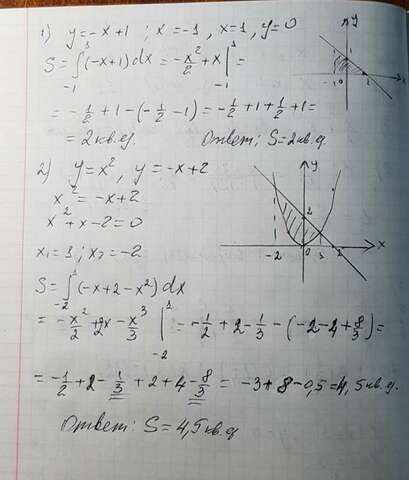 1) y=-x+1 ; x=-1, x=1, y=0
S = ∫₋₁¹ (-x+1) dx = -x²/2 + x |₋₁¹ =
= -1/2 + 1 - (-1/2 - 1) = -1/2 + 1 + 1/2 + 1 =
= 2 кв.ед. Ответ: S = 2 кв.ед
2) y=x², y=-x+2
x² = -x+2
x² + x - 2 = 0
x₁=1; x₂=-2
S = ∫₋₂¹ (-x+2-x²) dx
= -x²/2 + 2x - x³/3 |₋₂¹ = -1/2 + 2 - 1/3 - (-2-4+8/3) =
= -1/2 + 2 - 1/3 + 2 + 4 - 8/3 = -3 + 8 - 0,5 = 4,5 кв.ед.
Ответ: S = 4,5 кв.ед
y
-1 0 1
y
2
x
-2 0 1 2